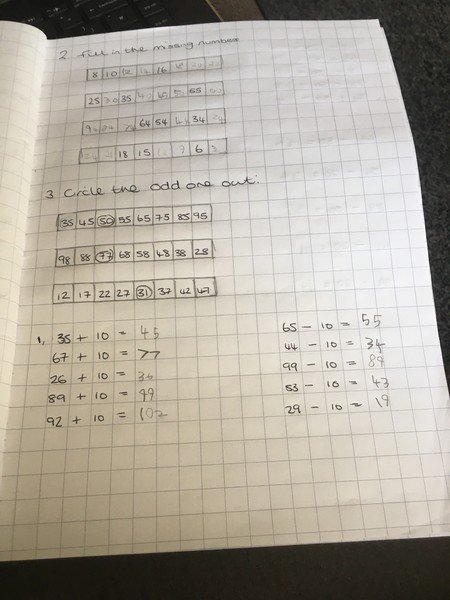 2 Fill in the missing number
8 10 12 14 16
25 30 35 40 45 50 55 60
94 84 74 64 54 44 34 24
24 21 18 15 12 9 6 3
3 Circle the odd one out:
35 45 50 55 65 75 85 95
98 88 77 68 58 48 38 28
12 17 22 27 31 37 42 47
1, 35 + 10 = 45
67 + 10 = 77
26 + 10 = 36
89 + 10 = 99
92 + 10 = 102
65 - 10 = 55
44 - 10 = 34
99 - 10 = 89
53 - 10 = 43
29 - 10 = 19